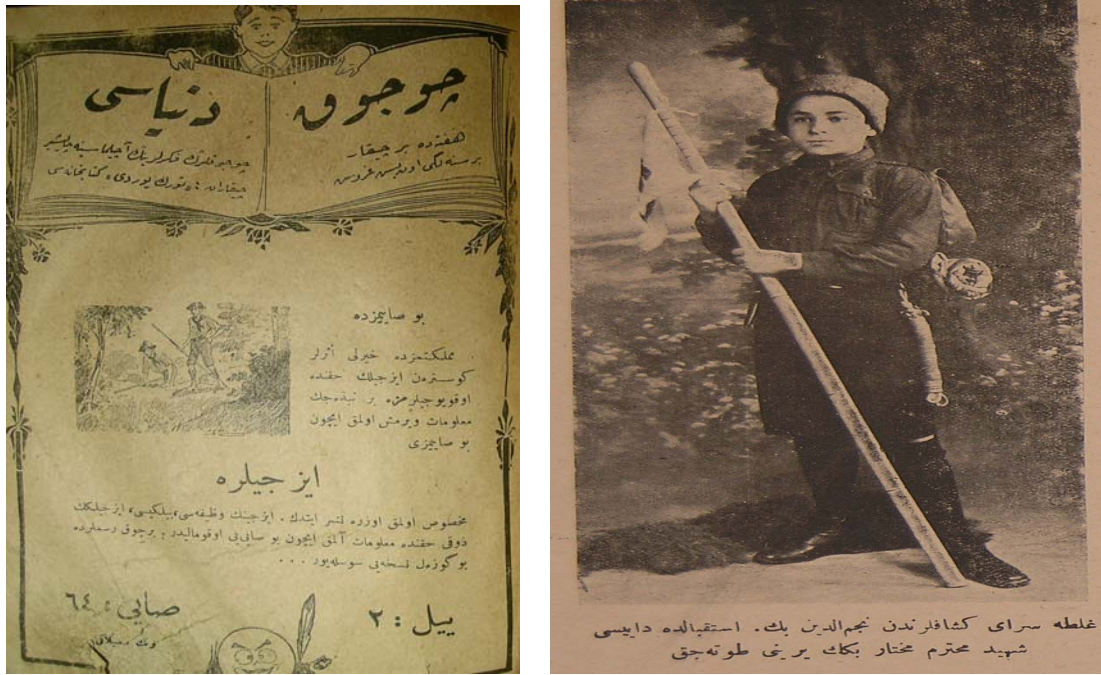 چوجوق دنیاسی
هفته‌ده بر چیقار
بر سنه‌لکی اون بش غروش
چوجوقلرڭ فکرلرینڭ آچیلماسینه چالیشیر
چیقاران : «تورك یوردی» کتابخانه‌سی
بو صاییمزده
مملکتمزده خیرلی أثرلر
کوسترەن ایزجیلك حقنده
اوقویوجیلرمزه بر نبذه‌جك
معلومات ویرمش اولمق ایچون
بو صاییمزی
ایزجیلره
مخصوص اولمق اوزره نشر ایتدك . ایزجینك وظیفه‌سی، بیلکیسی، ایزجیلکك
ذوقی حقنده معلومات آلمق ایچون بو صایی‌یی اوقومالیدر . برچوق رسملرده
بو کوزەل نسخه‌یی سوسله‌یور . . .
ییل : ٢
صایی : ٦٤
غلطه سرای کشافلرندن نجم‌الدین بك . استقبالده داییسی
شهید محترم مختار بكك یرینی طوته‌جق